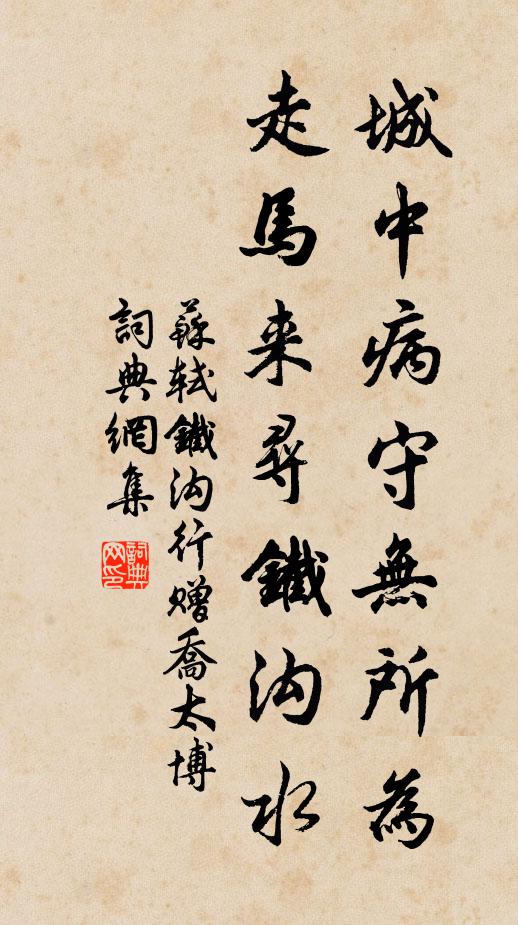 城中病守無所為
走馬来尋鐵沟水
蘇軾鐵沟行赠喬太博
詞典網集
詞典
网印